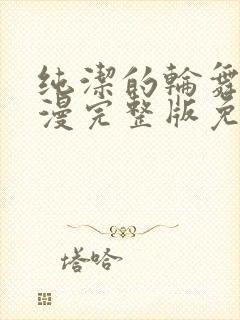 纯潔的輪舞
漫完整版免
塔哈